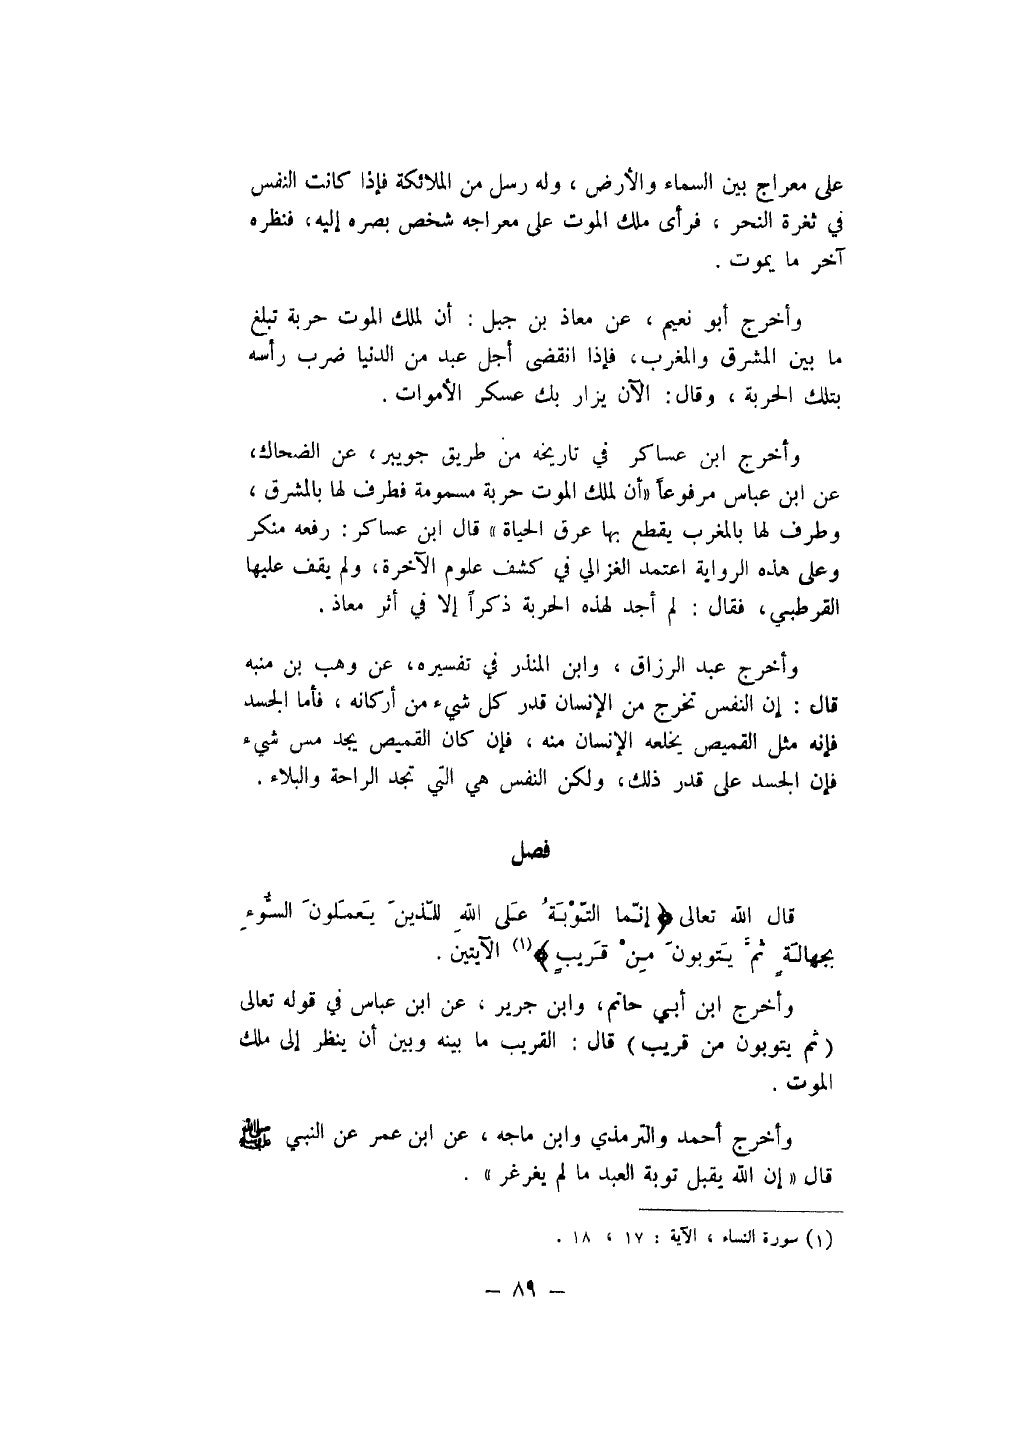 على معراج بين السماء والأرض ، وله رسل من الملائكة فإذا كانت النفس
في ثغرة النحر ، فرأى ملك الموت على معراجه شخص بصره إليه، فنظره
آخر ما يموت .
وأخرج أبو نعيم ، عن معاذ بن جبل : أن لملك الموت حربة تبلغ
ما بين المشرق والمغرب، فإذا انقضى أجل عبد من الدنيا ضرب رأسه
بتلك الحربة ، وقال: الآن يزار بك عسكر الأموات .
وأخرج ابن عساكر في تاريخه من طريق جويبر، عن الضحاك،
عن ابن عباس مرفوعاً «أن لملك الموت حربة مسمومة فطرف لها بالمشرق ،
وطرف لها بالمغرب يقطع بها عرق الحياة » قال ابن عساكر : رفعه منكر
وعلى هذه الرواية اعتمد الغزالي في كشف علوم الآخرة، ولم يقف عليها
القرطبي، فقال : لم أجد لهذه الحربة ذكراً إلا في أثر معاذ .
وأخرج عبد الرزاق ، وابن المنذر في تفسيره، عن وهب بن منبه
قال : إن النفس تخرج من الإنسان قدر كل شيء من أركانه ، فأما الجسد
فإنه مثل القميص يخلعه الإنسان منه ، فإن كان القميص يجد مس شيء
فإن الجسد على قدر ذلك، ولكن النفس هي التي تجد الراحة والبلاء .
فصل
قال الله تعالى ﴿ إنّما التّوْبَةُ عَلى اللهِ للّذينَ يَعمَلونَ السُّوءِ
بجهالَةٍ ثمَّ يَتوبونَ مِنْ قَريبٍ ﴾(١) الآيتين .
وأخرج ابن أبي حاتم، وابن جرير ، عن ابن عباس في قوله تعالى
( ثم يتوبون من قريب ) قال : القريب ما بينه وبين أن ينظر إلى ملك
الموت .
وأخرج أحمد والترمذي وابن ماجه ، عن ابن عمر عن النبي ﷺ
قال « إن الله يقبل توبة العبد ما لم يغرغر » .
(١) سورة النساء ، الآية : ١٧ ، ١٨ .
– ٨٩ –